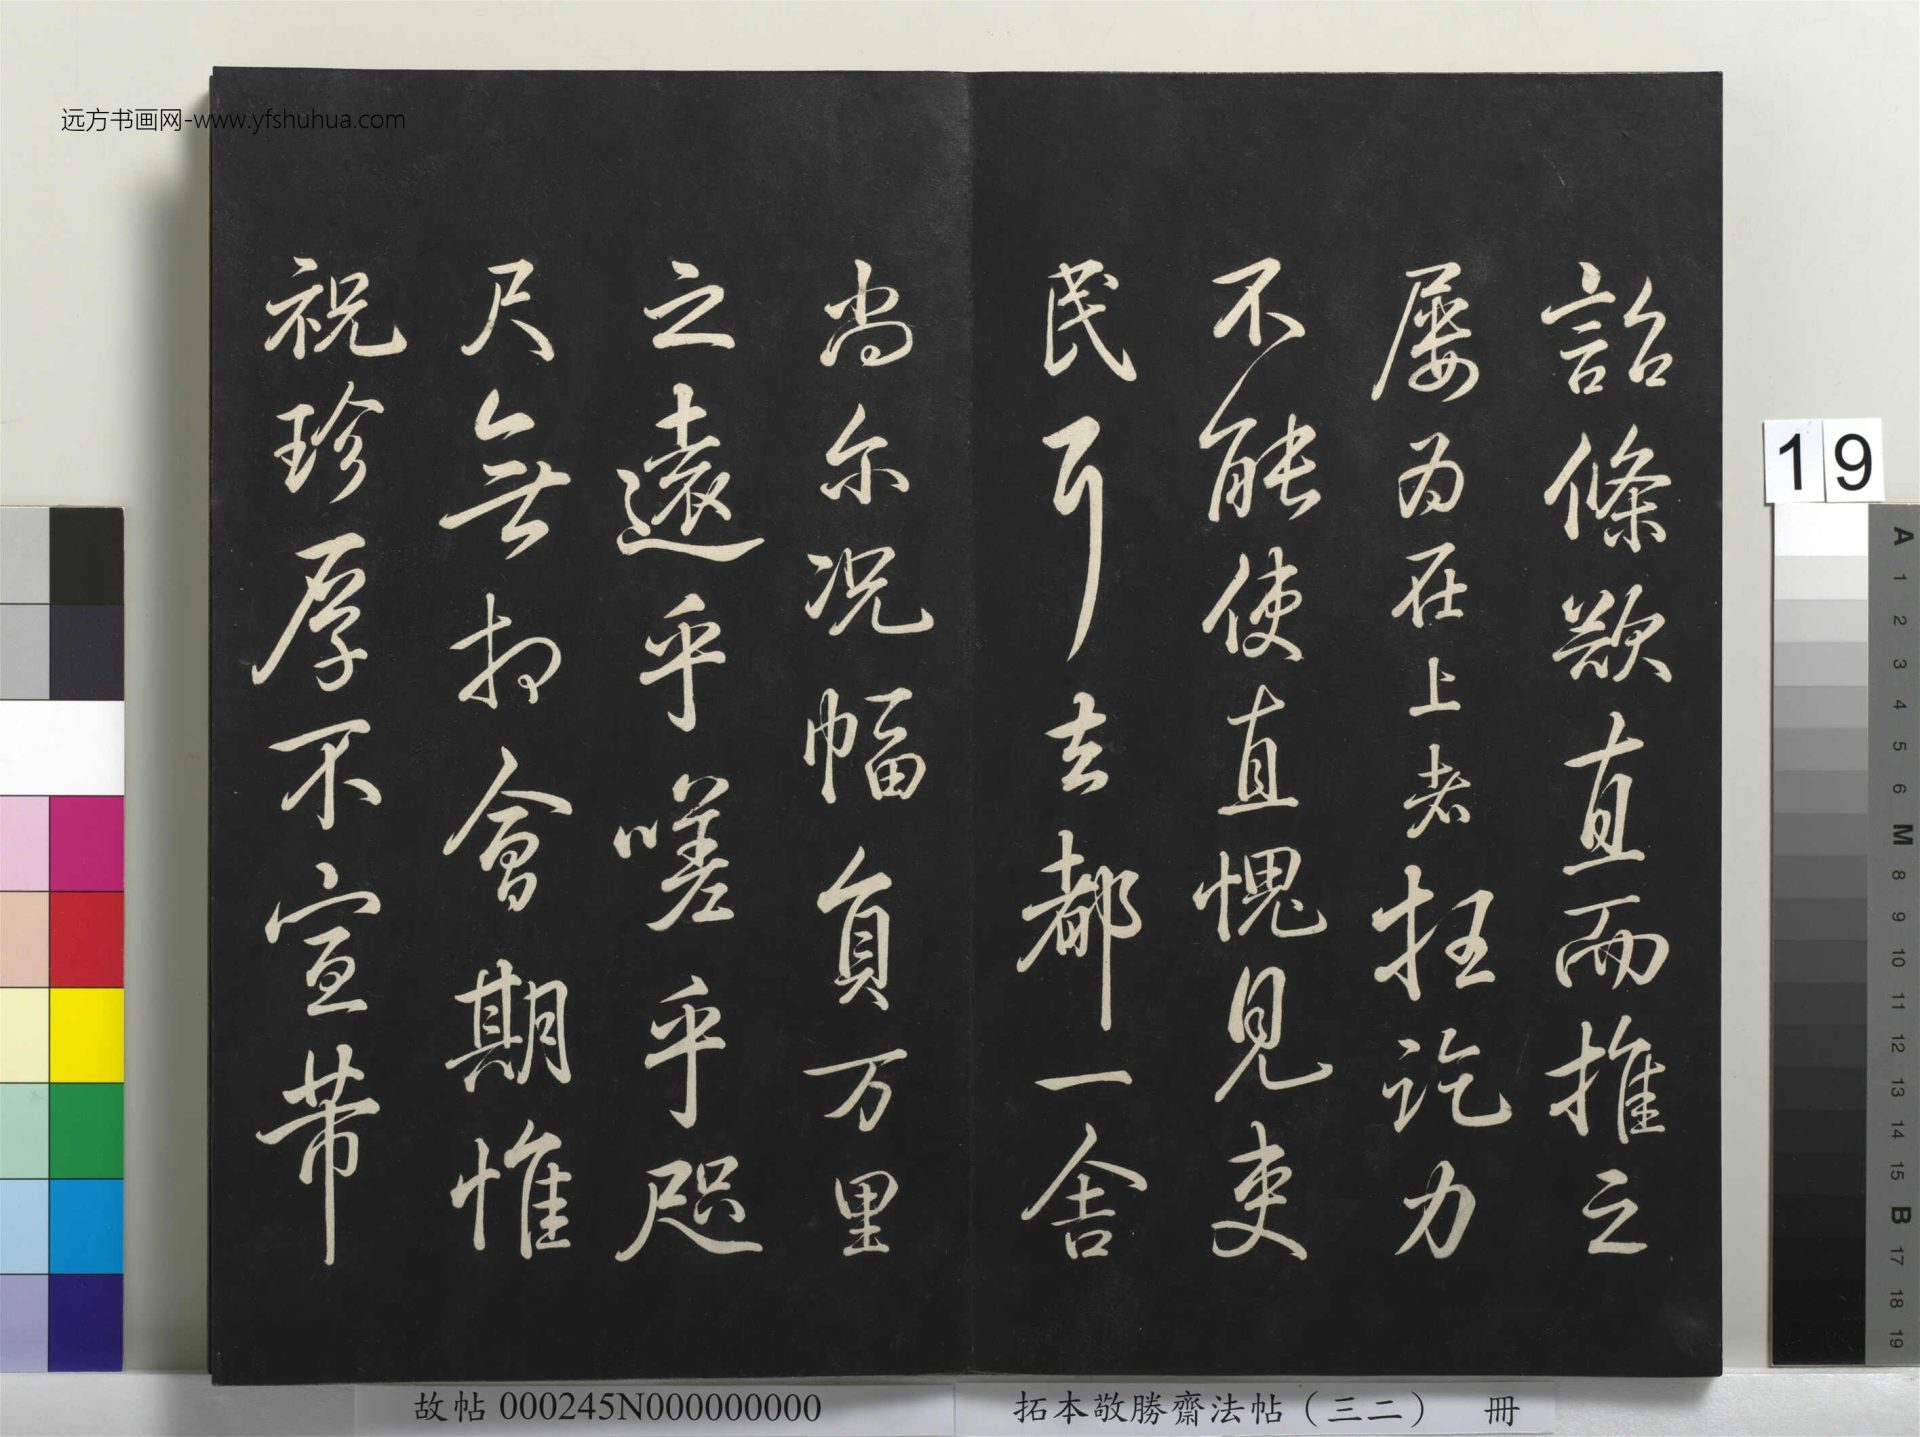 远方书画网-www.yfshuhua.com
詔條欲直而推之
屢为在上者抂訖力
不能使直愧見吏
民耳去都一舍
尚尔况幅員万里
之遠乎嗟乎咫
尺無相會期惟
祝珍厚不宣芾
故帖 000245N000000000
拓本敬勝齋法帖（三二） 冊
19
A 1 2 3 4 5 6 M 8 9 10 11 12 13 14 15 B 17 18 19